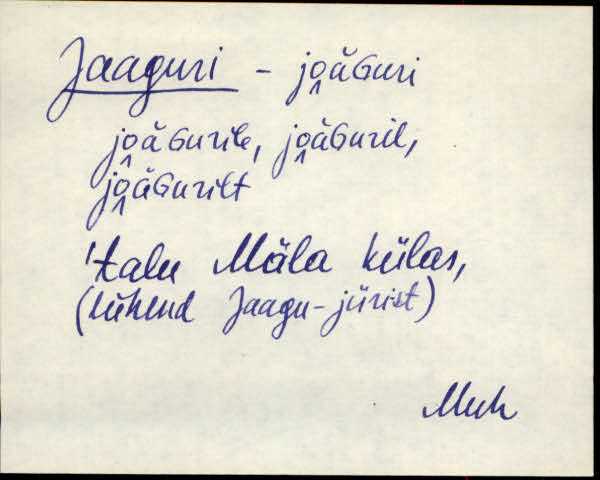 Jaaguri - jo̭äGuri
jo̭äGurile, jo̭äGuril,
jo̭äGurilt
'talu Mäla külas,
(lühend Jaagu-jürist)
Muh